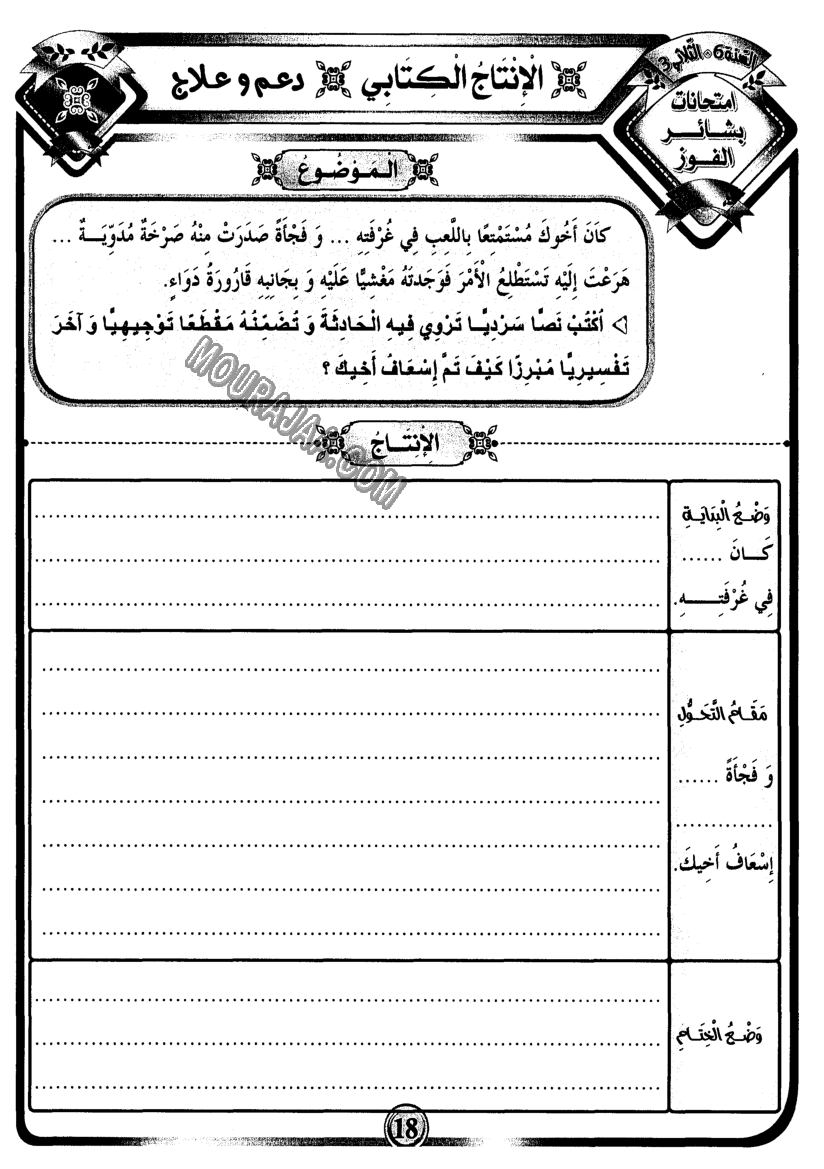 السّنة 6 • الثّلاثي 3
امتحانات
بشائر
الفوز
الْإِنْتَاجُ الْكِتَابِي دعم و علاج
الْمَوْضُوعُ
كَانَ أَخُوكَ مُسْتَمْتِعًا بِاللَّعِبِ فِي غُرْفَتِهِ ... وَ فَجْأَةً صَدَرَتْ مِنْهُ صَرْخَةٌ مُدَوِّيَةٌ ...
هَرَعْتَ إِلَيْهِ تَسْتَطْلِعُ الْأَمْرَ فَوَجَدتَهُ مَغْشِيًّا عَلَيْهِ وَ بِجَانِبِهِ قَارُورَةُ دَوَاءٍ.
أُكْتُبْ نَصًّا سَرْدِيًّا تَرْوِي فِيهِ الْحَادِثَةَ وَ تُضَمِّنُهُ مَقْطَعًا تَوْجِيهِيًّا وَ آخَرَ
تَفْسِيرِيًّا مُبْرِزًا كَيْفَ تَمَّ إِسْعَافُ أَخِيكَ ؟
MOURAJAA.COM
الْإِنْتَاجُ
وَضْعُ الْبِدَايَةِ
كَانَ ......
فِي غُرْفَتِهِ.
مَقَامُ التَّحَوُّلِ
وَ فَجْأَةً ......
............
إِسْعَافُ أَخِيكَ.
وَضْعُ الْخِتَامِ
18